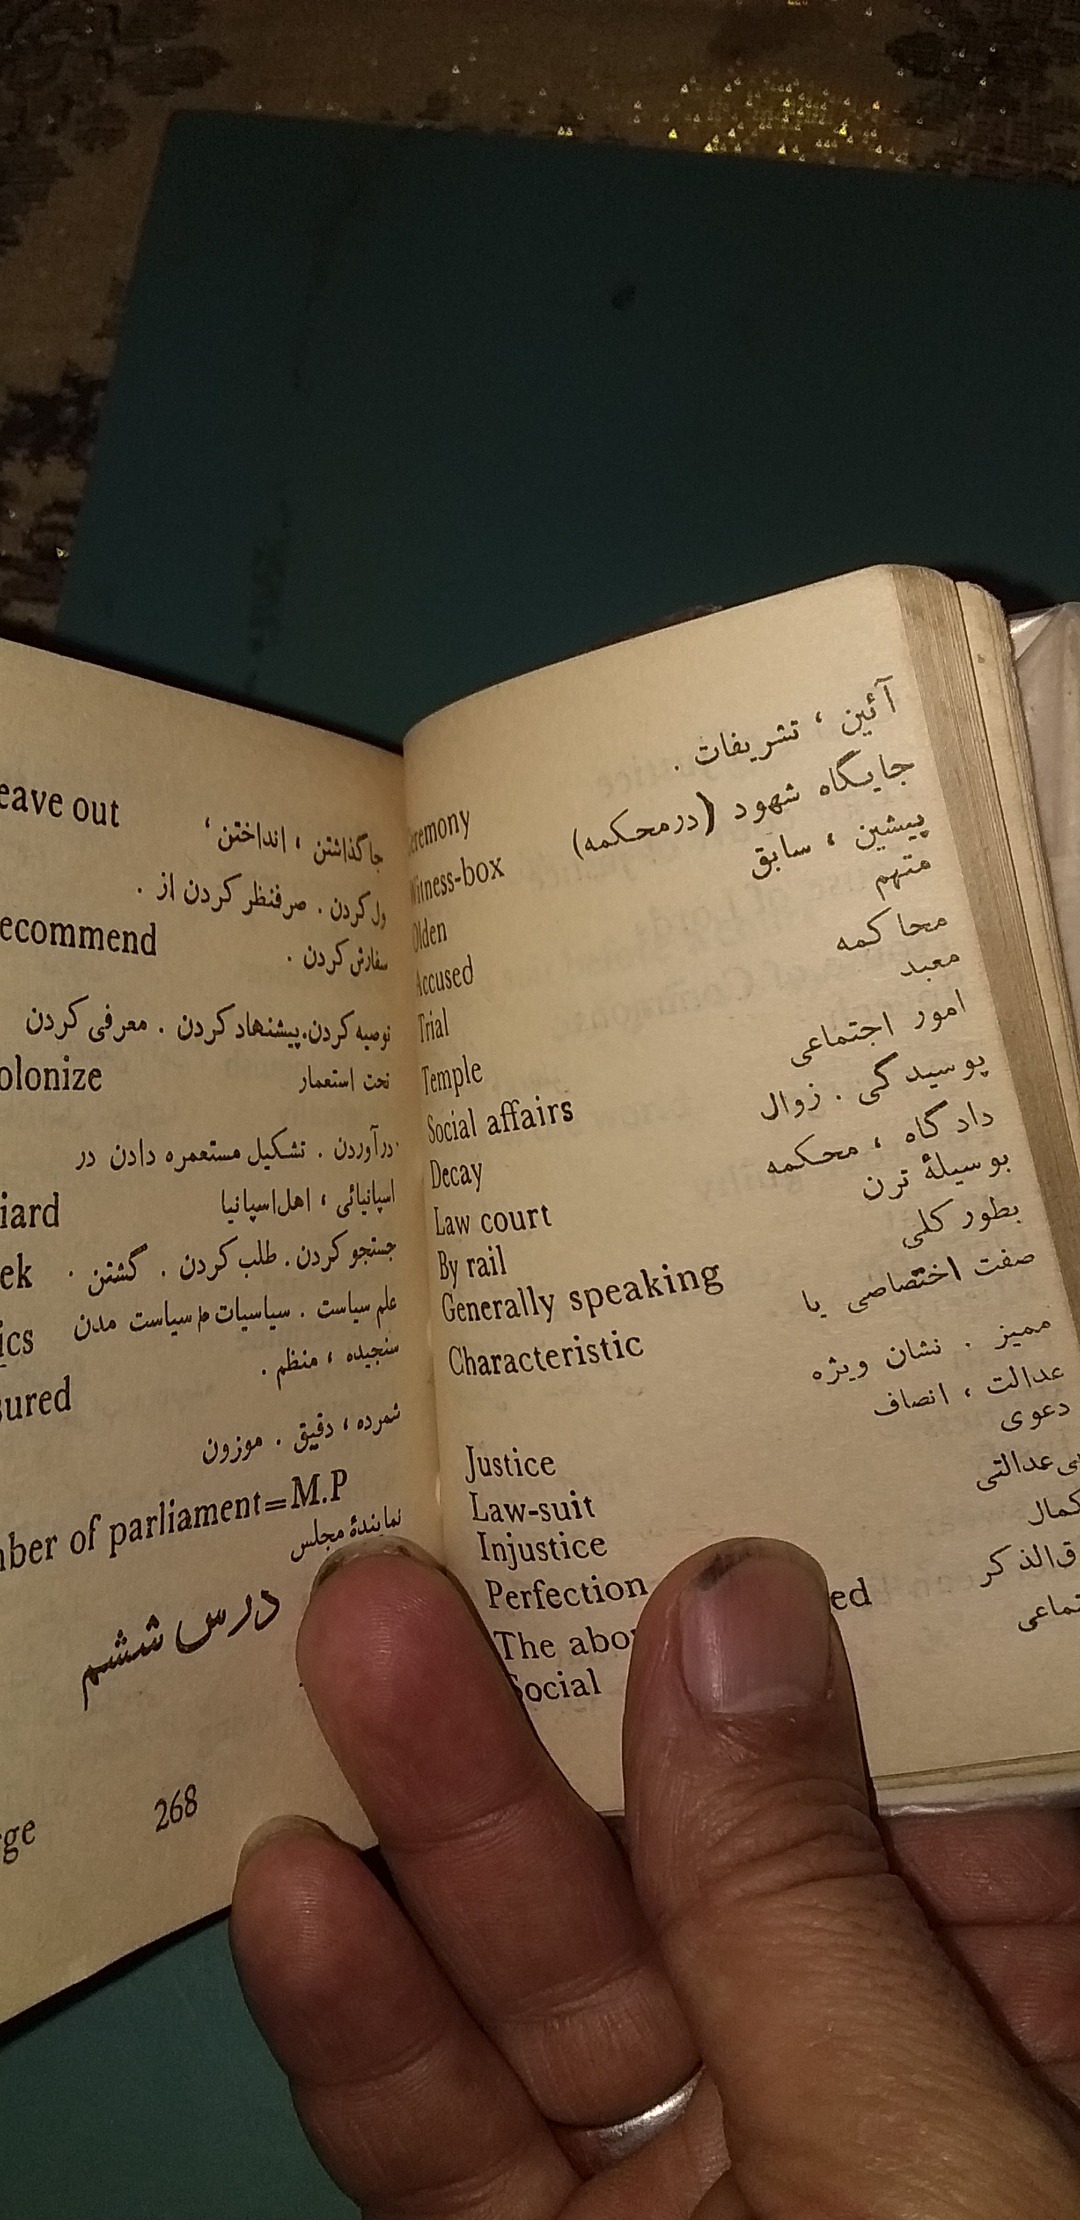 eave out
جا گذاشتن ، انداختن ،
ول کردن . صرفنظر کردن از .
ecommend
سفارش کردن .
توصیه کردن.پیشنهاد کردن . معرفی کردن
olonize تحت استعمار
درآوردن . تشکیل مستعمره دادن در
iard اسپانیائی ، اهل اسپانیا
ek جستجو کردن . طلب کردن . گشتن .
ics علم سیاست . سیاسیات سیاست مدن
sured سنجیده ، منظم .
شمرده ، دقیق . موزون
ber of parliament=M.P
نمایندهٔ مجلس
درس ششم
ge
268
eremony آئین ، تشریفات .
Witness-box جایگاه شهود (درمحکمه)
Olden پیشین ، سابق
Accused متهم
Trial محاکمه
Temple معبد
Social affairs امور اجتماعی
Decay پوسیدگی . زوال
Law court دادگاه ، محکمه
By rail بوسیلهٔ ترن
Generally speaking بطور کلی
Characteristic صفت اختصاصی یا
ممیز . نشان ویژه
Justice عدالت ، انصاف
Law-suit دعوی
Injustice بی‌عدالتی
Perfection کمال
The abo ed ق‌الذکر
Social تماعی